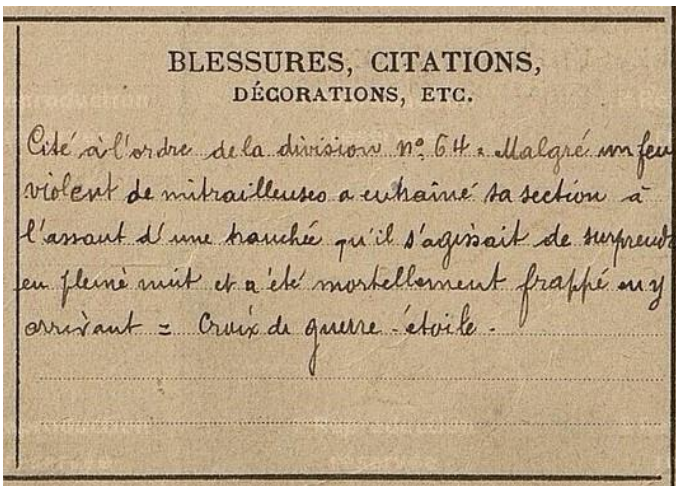 BLESSURES, CITATIONS,
DÉCORATIONS, ETC.
Cité à l'ordre de la division n° 64. Malgré un feu
violent de mitrailleuses a entraîné sa section à
l'assaut d'une tranchée qu'il s'agissait de surprendre
en pleine nuit et a été mortellement frappé en y
arrivant = Croix de guerre - étoile -